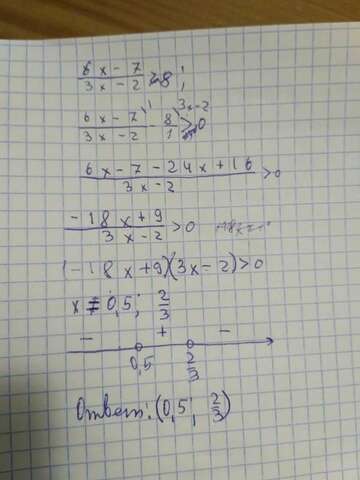 6x-7/3x-2 > 8;
6x-7\1/3x-2 - 8\3x-2/1 > 0
6x-7-24x+16/3x-2 > 0
-18x+9/3x-2 > 0
(-18x+9)(3x-2)>0
x = 0,5; 2/3
- + -
0,5 2/3
Ответ: (0,5; 2/3)